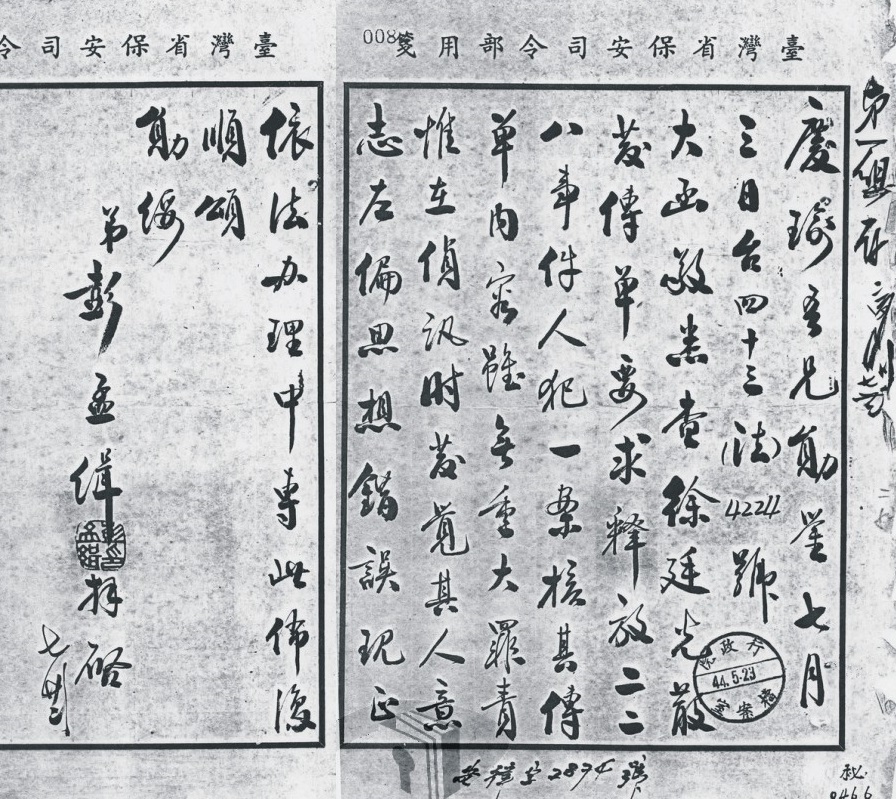 臺灣省保安司令部用箋
008
慶瑜吾兄勛鑒七月
三日台四十三(法)4224號
大函敬悉查徐廷光散
發傳單要求釋放二二
八事件人犯一案核其傳
單內容雖無重大罪責
惟在偵訊時發覺其人意
志左傾思想錯誤現正
行政院
44.5.23
檔案
安積字2874號
秘
0466
令司安保省灣臺
依法辦理中專此佈復
順頌
勛綏
弟彭孟緝拜啓
彭孟緝印